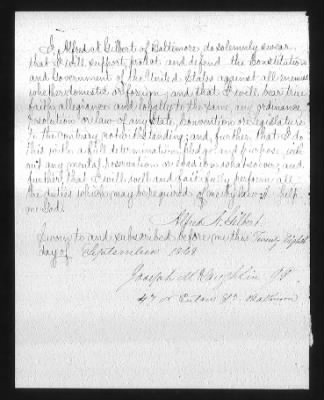 I, Alfred A. Gilbert of Baltimore, do solemnly swear
that I will support, protect and defend the Constitution
and Government of the United States against all enemies
whether domestic or foreign; and that I will bear true
faith, allegiance and loyalty to the same, any ordinance
resolution or law of any State, Convention or Legislature
to the contrary notwithstanding; and, further that I do
this with a full determination, pledge and purpose with
out any mental reservation or evasion whatsoever; and
further, that I will well and faithfully perform all
the duties which may be required of me by law. So help
me God.
Alfred A. Gilbert
Sworn to and subscribed before me this Twenty Eighth
day of September 1868
Joseph
47 Eutaw St. Baltimore